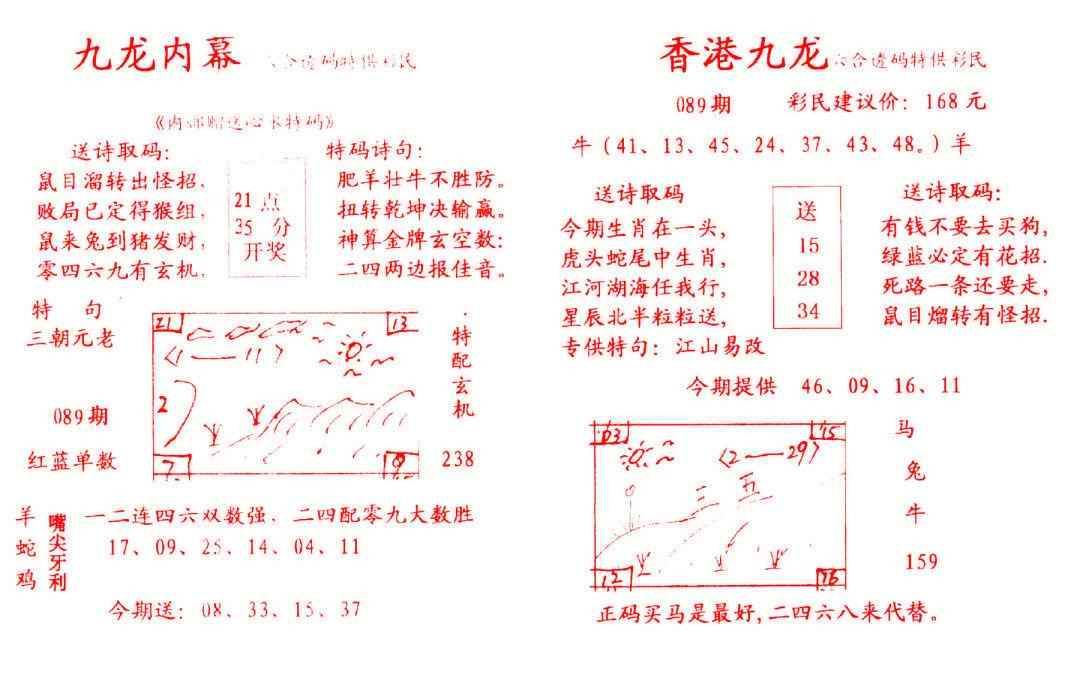 九龙内幕 六合透码特供彩民
《内部赠送心水特码》
送诗取码:
鼠目溜转出怪招.
败局已定得猴组,
鼠来兔到猪发财,
零四六九有玄机.
21 点
35 分
开奖
特码诗句:
肥羊壮牛不胜防。
扭转乾坤决输赢。
神算金牌玄空数:
二四两边报佳音。
特 句
三朝元老
089期
红蓝单数
21
13
2
7
9
特配玄机
238
羊
蛇
鸡
嘴尖牙利
一二连四六双数强. 二四配零九大数胜
17、09、25、14、04、11
今期送: 08、33、15、37
香港九龙 六合透码特供彩民
089期 彩民建议价: 168元
牛(41、13、45、24、37、43、48。)羊
送诗取码
今期生肖在一头,
虎头蛇尾中生肖,
江河湖海任我行,
星辰北半粒粒送,
专供特句: 江山易改
送
15
28
34
送诗取码:
有钱不要去买狗,
绿蓝必定有花招.
死路一条还要走,
鼠目熘转有怪招.
今期提供 46、09、16、11
03
15
〈2——29〉
三 五
12
马
兔
牛
159
正码买马是最好,二四六八来代替。